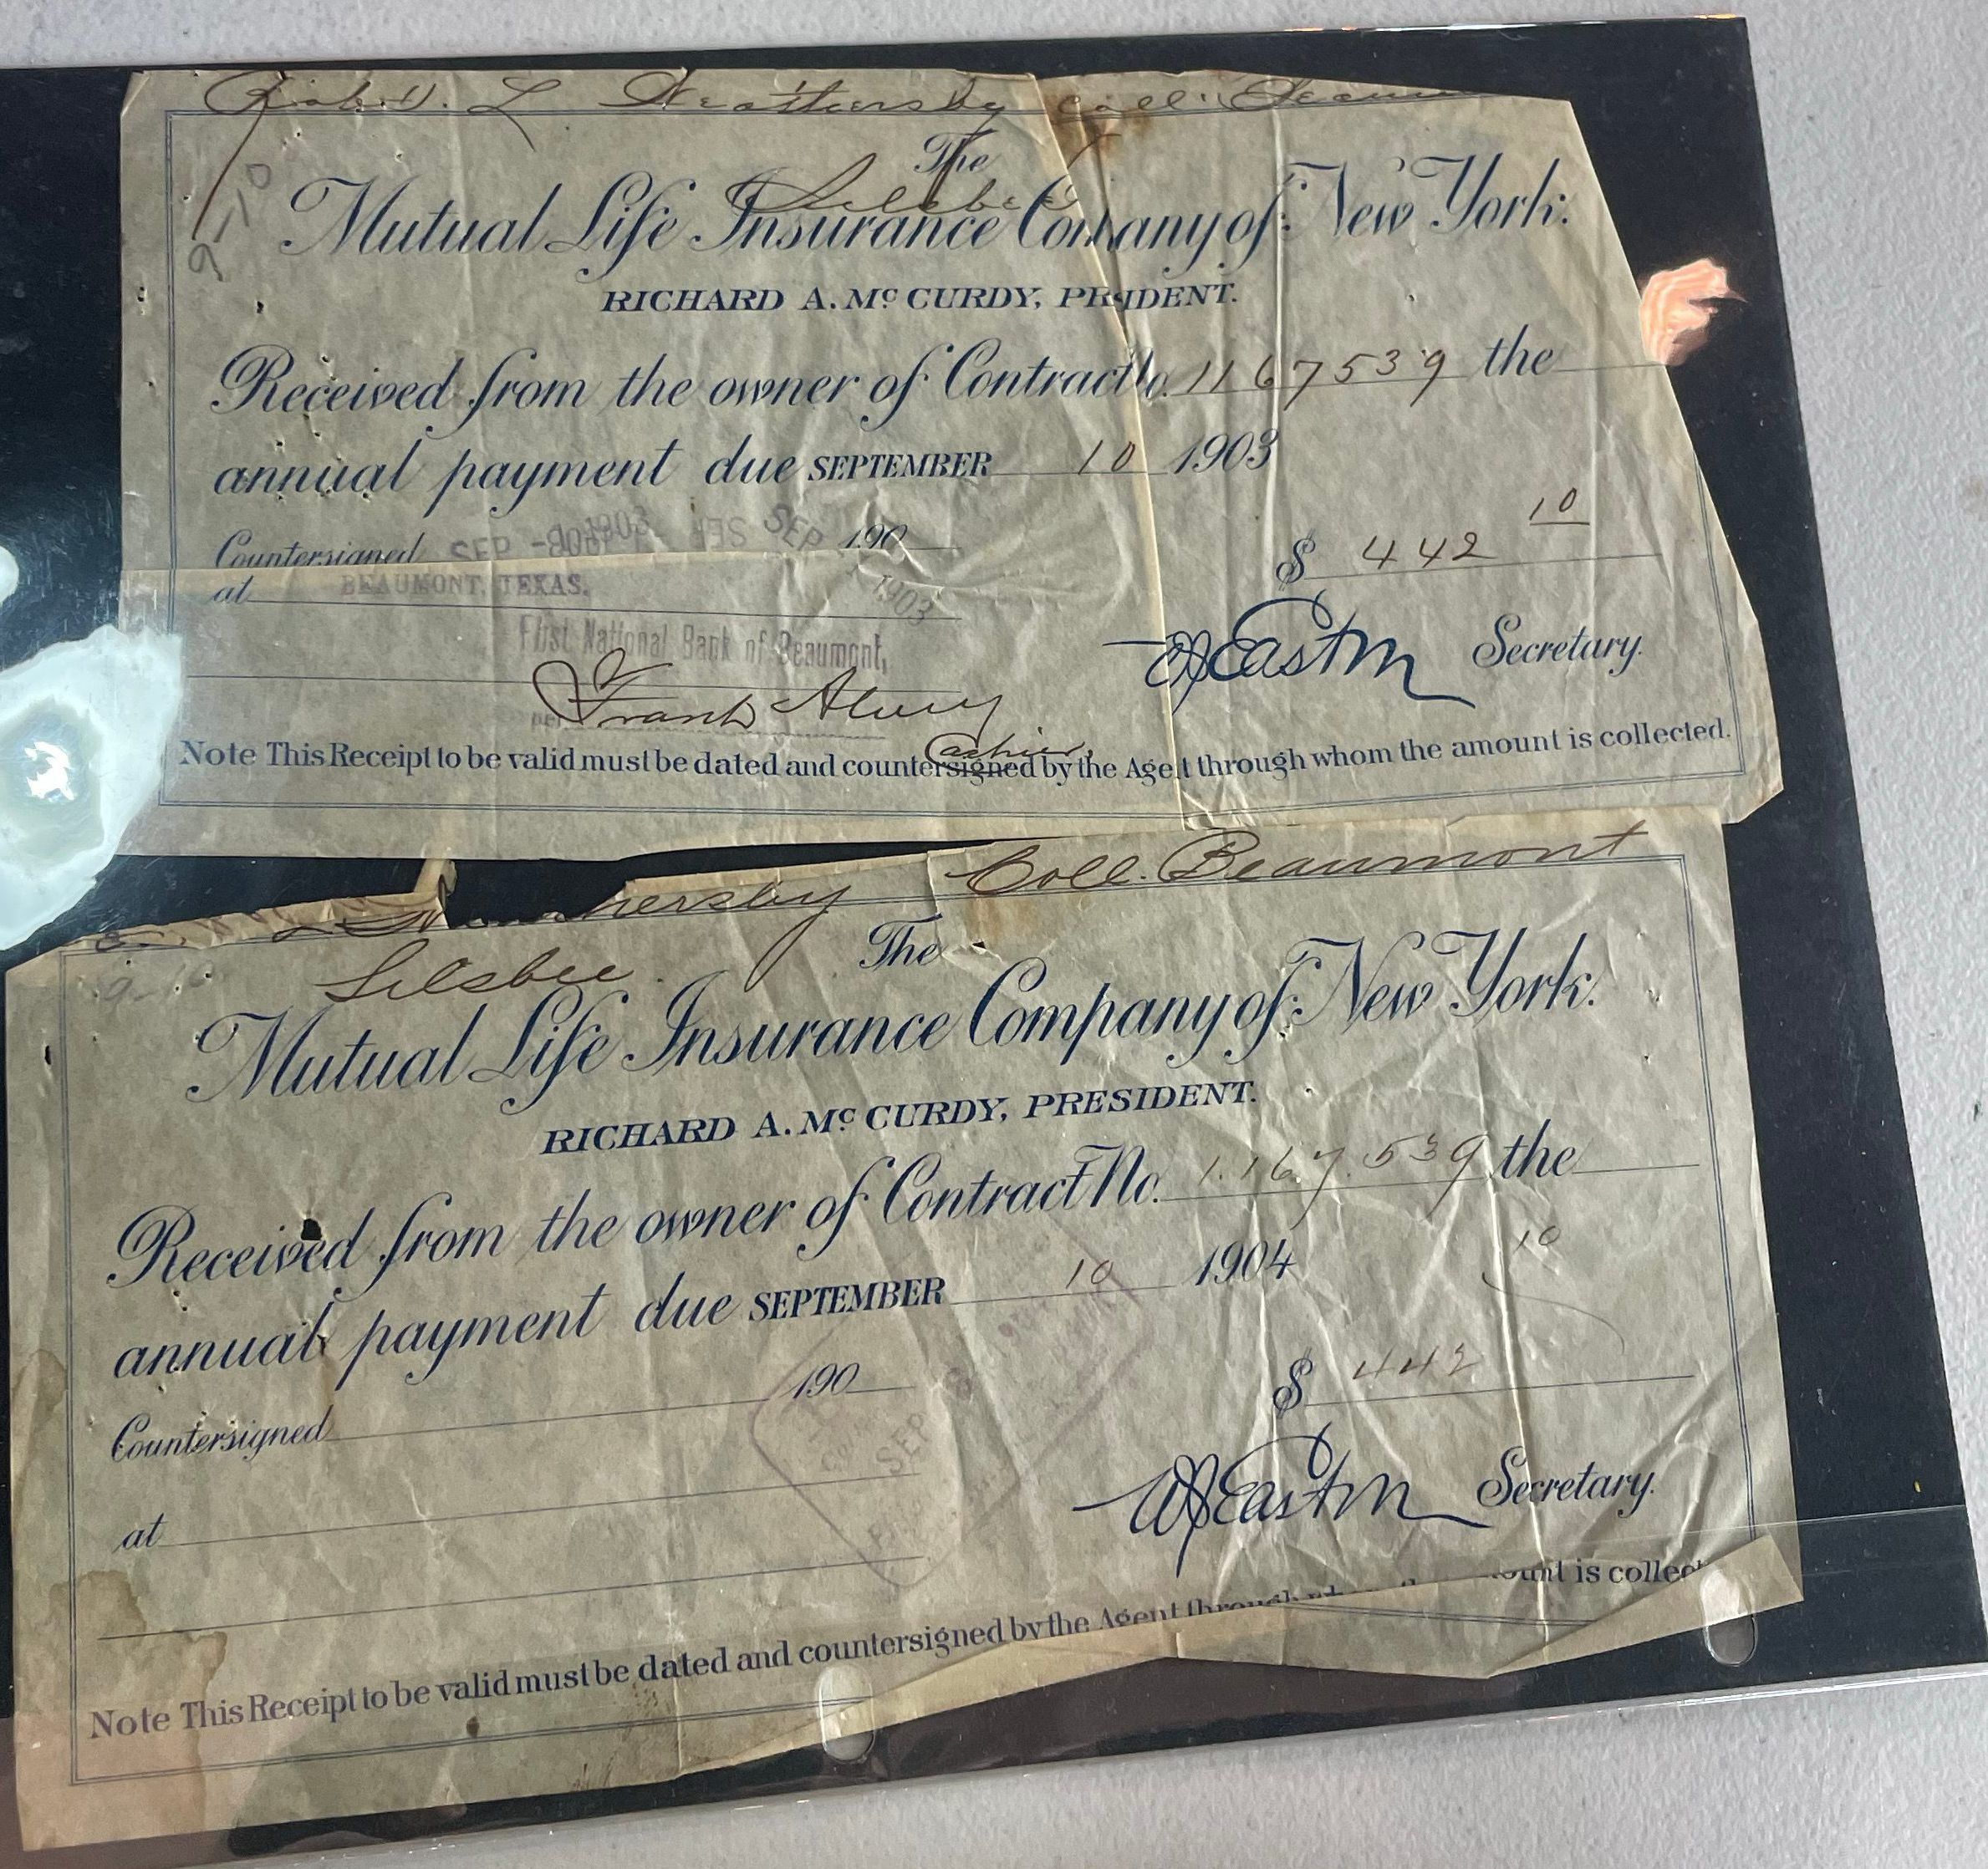 L Weathersby Coll.
The
Silsbee
Mutual Life Insurance Comany of New York.
9-10
RICHARD A. Mc CURDY, PRIDENT.
Received from the owner of Contract No. 1167539 the
annual payment due SEPTEMBER 10 1903
10
Countersigned SEP 1903 SEP 190
$ 442
at BEAUMONT, TEXAS. 1903
First National Bank of Beaumont,
W J Easton Secretary.
per Frank Alvey
Cashier,
Note This Receipt to be valid must be dated and countersigned by the Agent through whom the amount is collected.
L hersby Coll. Beaumont
Silsbee The
9-10
Mutual Life Insurance Company of New York.
RICHARD A. Mc CURDY, PRESIDENT.
Received from the owner of Contract No. 1.167.539 the
annual payment due SEPTEMBER 10 1904
10
190
$ 442
Countersigned
SEP 8
at
W J Easton Secretary.
Note This Receipt to be valid must be dated and countersigned by the Agent through ount is collect